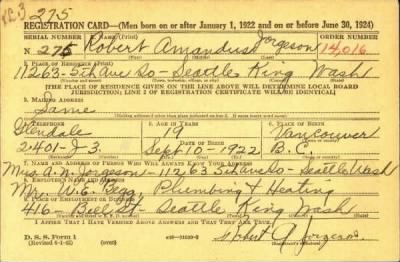 V23 275
REGISTRATION CARD—(Men born on or after January 1, 1922 and on or before June 30, 1924)
SERIAL NUMBER 1. NAME (Print) ORDER NUMBER
N 275 Robert Amanduse Jorgeson 14,016
11263-5th Ave So- Seattle King Wash
[THE PLACE OF RESIDENCE GIVEN ON THE LINE ABOVE WILL DETERMINE LOCAL BOARD
JURISDICTION; LINE 2 OF REGISTRATION CERTIFICATE WILL BE IDENTICAL]
3. MAILING ADDRESS
Same
4. TELEPHONE 5. AGE IN YEARS 6. PLACE OF BIRTH
Glendale 19 Vancouver
DATE OF BIRTH
2401-J-3 Sept 10-1922 B.C.
7. NAME AND ADDRESS OF PERSON WHO WILL ALWAYS KNOW YOUR ADDRESS
Mrs. A.N. Jorgeson-11263 5th Ave So-Seattle Wash
Mr. W.E. Begg, Plumbing & Heating
9. PLACE OF EMPLOYMENT OR BUSINESS
416- Bell St- Seattle King Wash
I AFFIRM THAT I HAVE VERIFIED ABOVE ANSWERS AND THAT THEY ARE TRUE.
D. S. S. Form 1
(Revised 6-1-42)
Robert A. Jorgeson